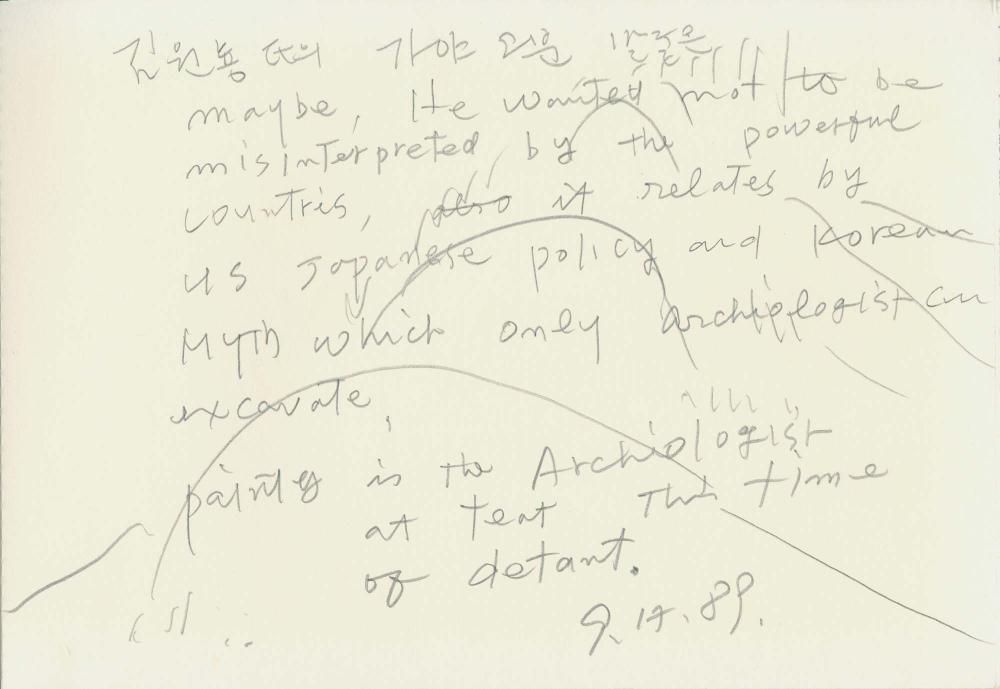 김원룡 氏의 가야 외운
maybe, He wanted not to be
misinterpreted by the powerful
countris, also it relates by
us Japanese policy and Korean
Myth which only archiologist can
excavate,
painting is the Archiologist
at teat this time
of detant.
9.14.89.